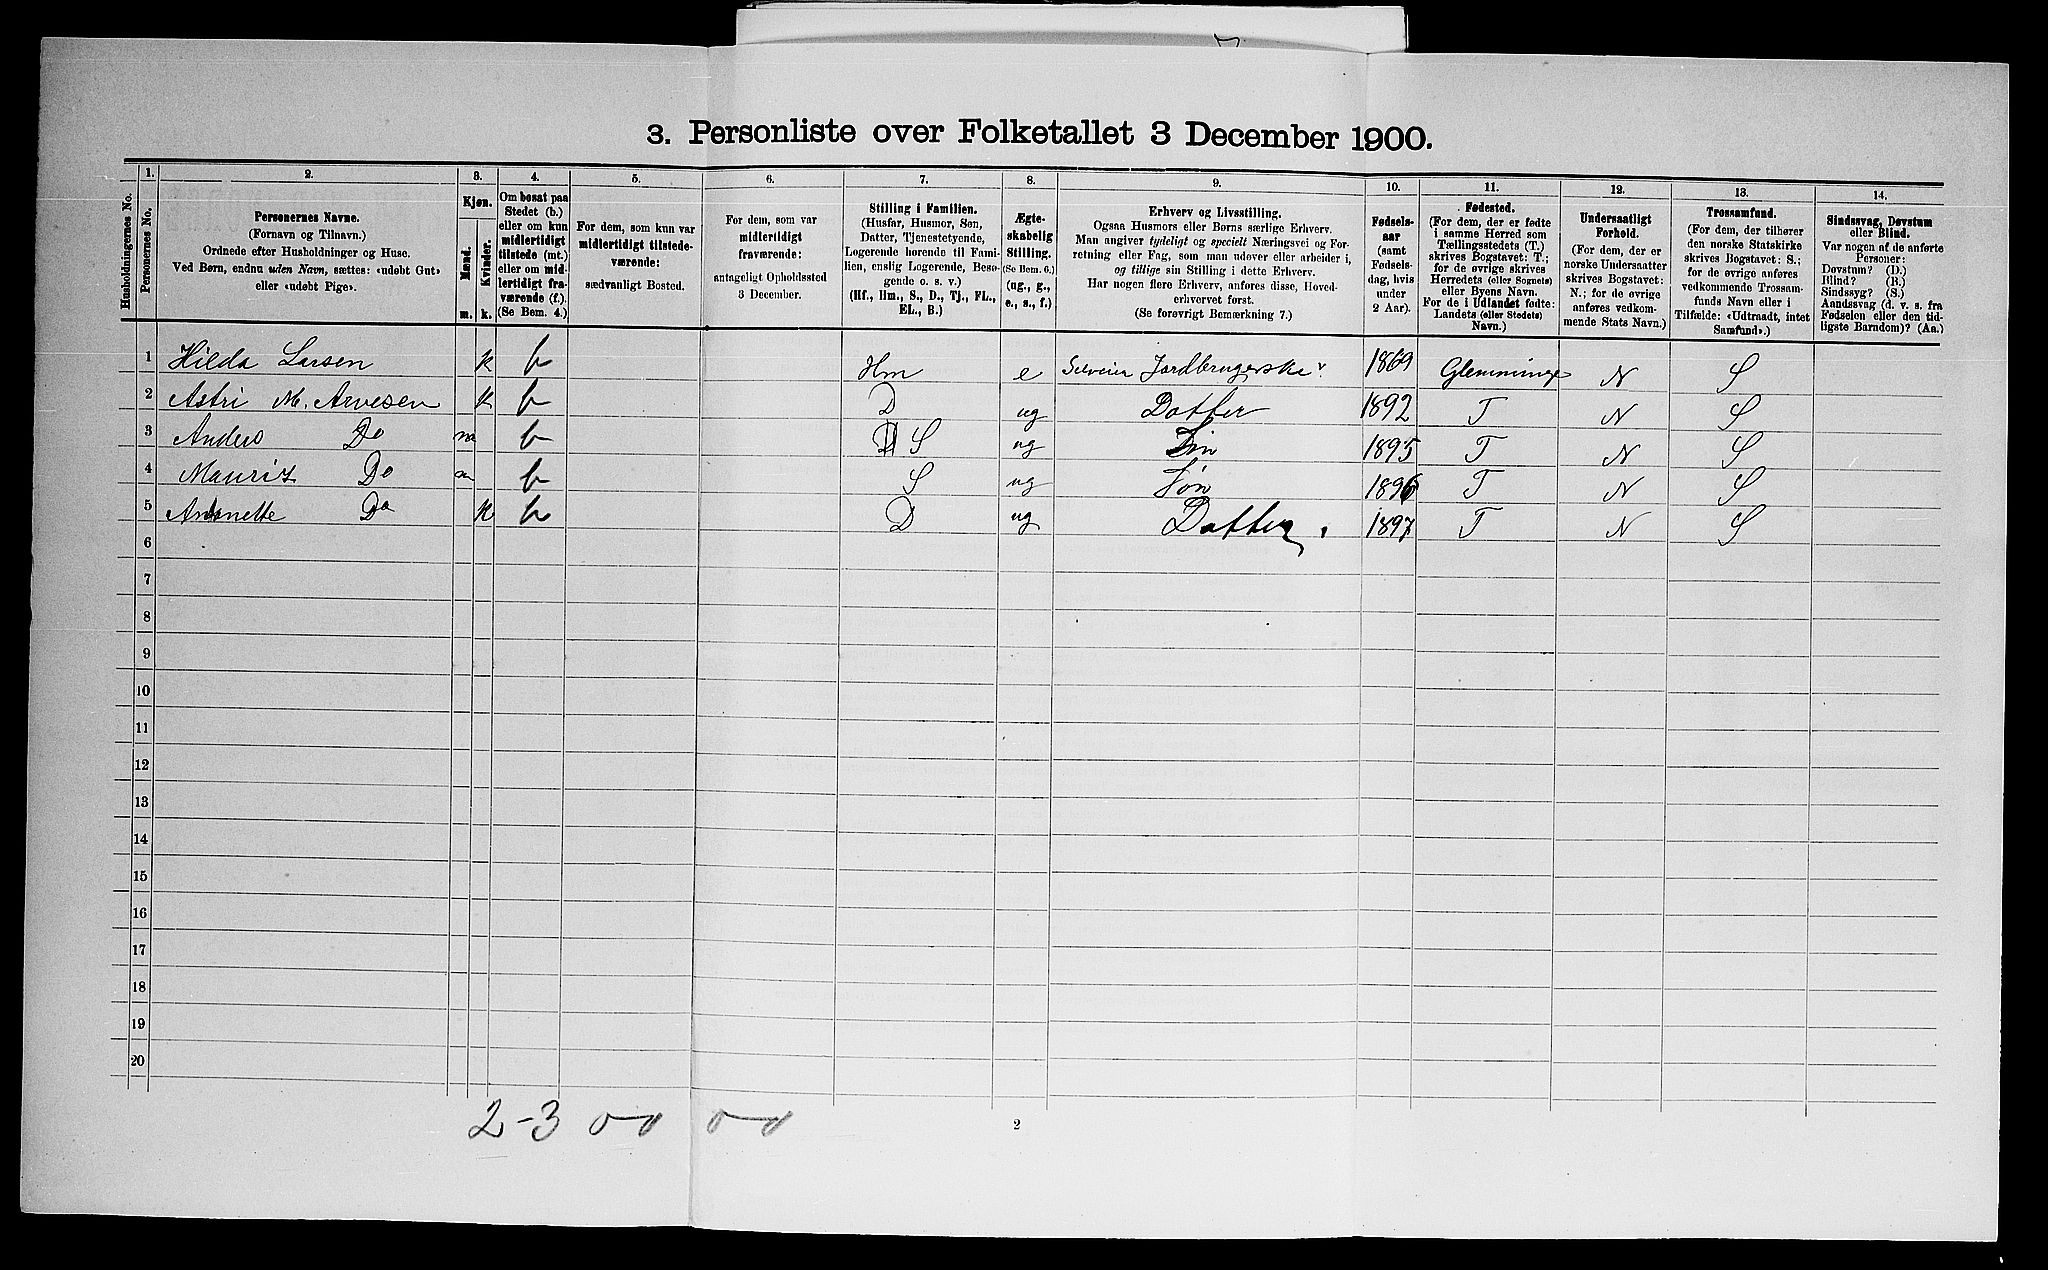 3. Personliste over Folketallet 3 December 1900.
Husholdningernes No.
1. Personernes No.
2. Personernes Navne. (Fornavn og Tilnavn.) Ordnede efter Husholdninger og Huse. Ved Børn, endnu uden Navn, sættes: «udøbt Gut» eller «udøbt Pige».
3. Kjøn. Mænd. m. Kvinder. k.
4. Om bosat paa Stedet (b.) eller om kun midlertidigt tilstede (mt.) eller om midlertidigt fraværende (f.). (Se Bem. 4.)
5. For dem, som kun var midlertidigt tilstedeværende: sædvanligt Bosted.
6. For dem, som var midlertidigt fraværende: antageligt Opholdssted 3 December.
7. Stilling i Familien. (Husfar, Husmor, Søn, Datter, Tjenestetyende, Logerende hørende til Familien, enslig Logerende, Besøgende o. s. v.) (Hf., Hm., S., D., Tj., FL., EL., B.)
8. Ægteskabelig Stilling. (Se Bem. 6.) (ug., g., e., s., f.)
9. Erhverv og Livsstilling. Ogsaa Husmors eller Børns særlige Erhverv. Man angiver tydeligt og specielt Næringsvei og Forretning eller Fag, som man udøver eller arbeider i, og tillige sin Stilling i dette Erhverv. Har nogen flere Erhverv, anføres disse, Hovederhvervet først. (Se forøvrigt Bemærkning 7.)
10. Fødselsaar (samt Fødselsdag, hvis under 2 Aar).
11. Fødested. (For dem, der er fødte i samme Herred som Tællingsstedets (T.) skrives Bogstavet: T.; for de øvrige skrives Herredets (eller Sognets) eller Byens Navn. For de i Udlandet fødte: Landets (eller Stedets) Navn.)
12. Undersaatligt Forhold. (For dem, der er norske Undersaatter skrives Bogstavet: N.; for de øvrige anføres vedkommende Stats Navn.)
13. Trossamfund. (For dem, der tilhører den norske Statskirke skrives Bogstavet: S.; for de øvrige anføres vedkommende Trossamfunds Navn eller i Tilfælde: «Udtraadt, intet Samfund».)
14. Sindssvag, Døvstum eller Blind. Var nogen af de anførte Personer: Døvstum? (D.) Blind? (B.) Sindssyg? (S.) Aandssvag (d. v. s. fra Fødselen eller den tidligste Barndom)? (Aa.)
1 Hilda Larsen k b Hm e Selveier Jordbrugerske 1869 Glemminge N S
2 Astri M. Arvesen k b D ug Datter 1892 T N S
3 Anders Do m b S ug Søn 1895 T N S
4 Maurits Do m b S ug Søn 1896 T N S
5 Antonette Do k b D ug Datter. 1897 T N S
6
7
8
9
10
11
12
13
14
15
16
17
18
19
20
2-3
2